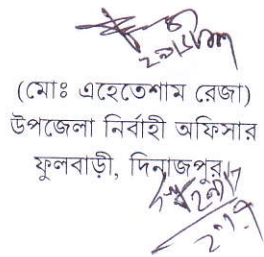 (মোঃ এহেতেশাম রেজা)
উপজেলা নির্বাহী অফিসার
ফুলবাড়ী, দিনাজপুর।